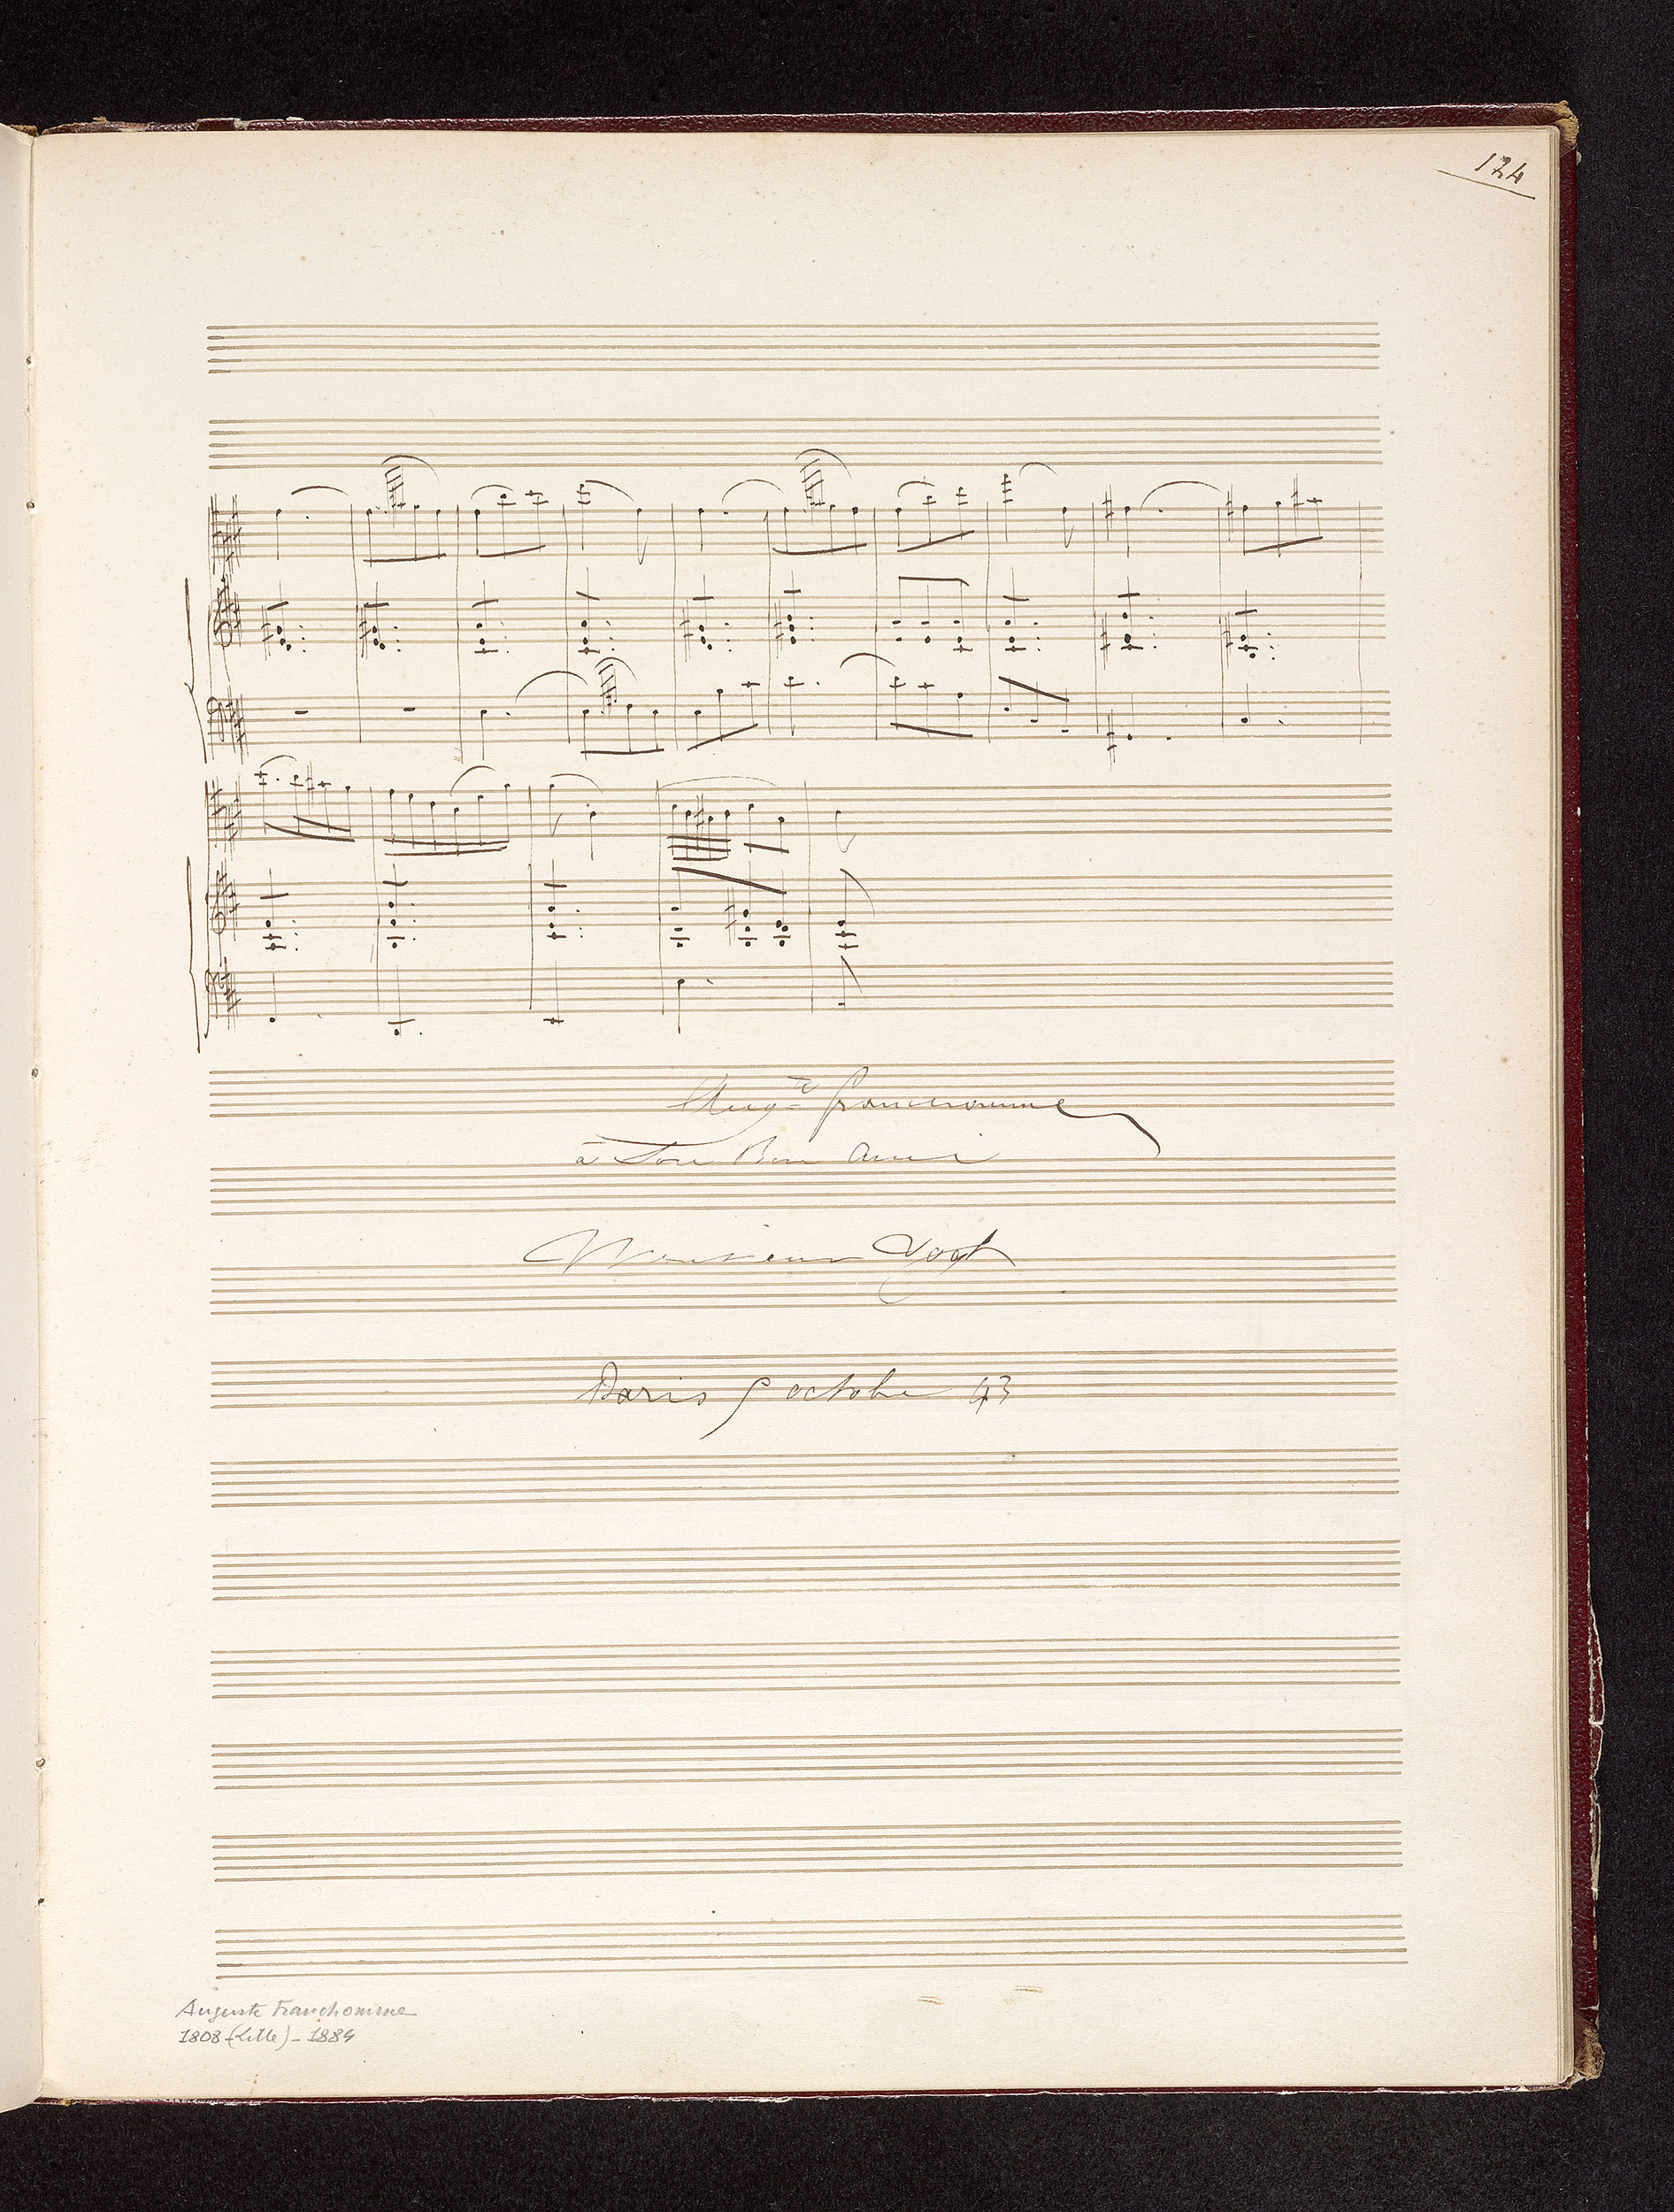 124
Aug.te franchomme
à Son Bon Ami
Monsieur Vogt
Paris 9 octobre 43
Auguste Franchomme
1808 (Lille) - 1884